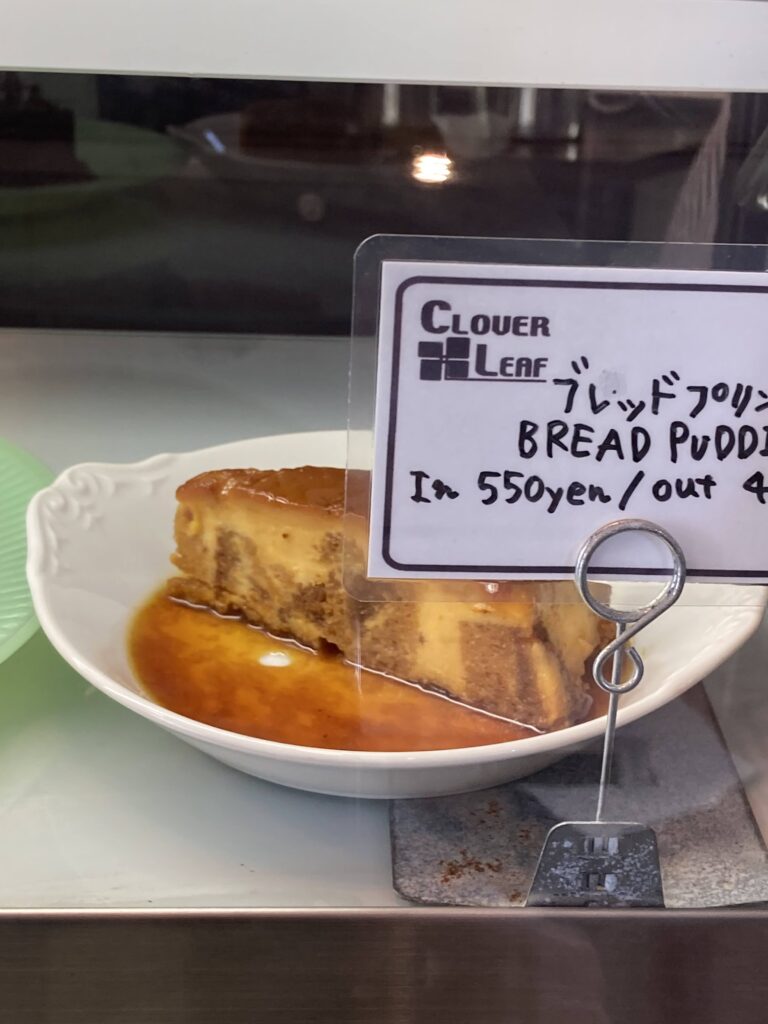 CLOVER
LEAF
ブレッドプリン
BREAD PUDDI
In 550yen/out 4